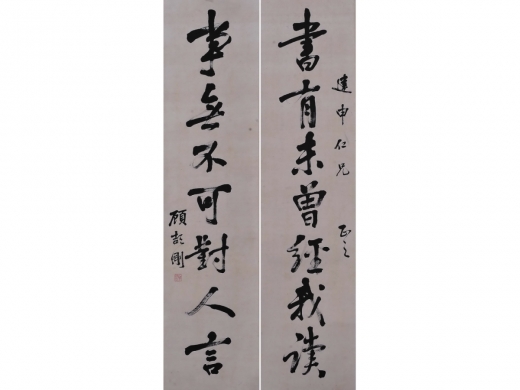 書有未曾經我讀
達申仁兄 正之
事無不可對人言
顧頡剛